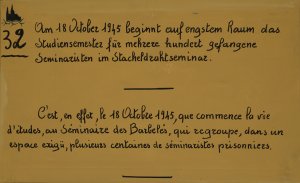 32
Am 18 Oktober 1945 beginnt auf engstem Raum das
Studiensemester für mehrere hundert gefangene
Seminaristen im Stacheldrahtseminar.
C'est, en effet, le 18 Octobre 1945, que commence la vie
d'études, au Séminaire des Barbelés, qui regroupe, dans un
espace exigü, plusieurs centaines de séminaristes prisonniers.